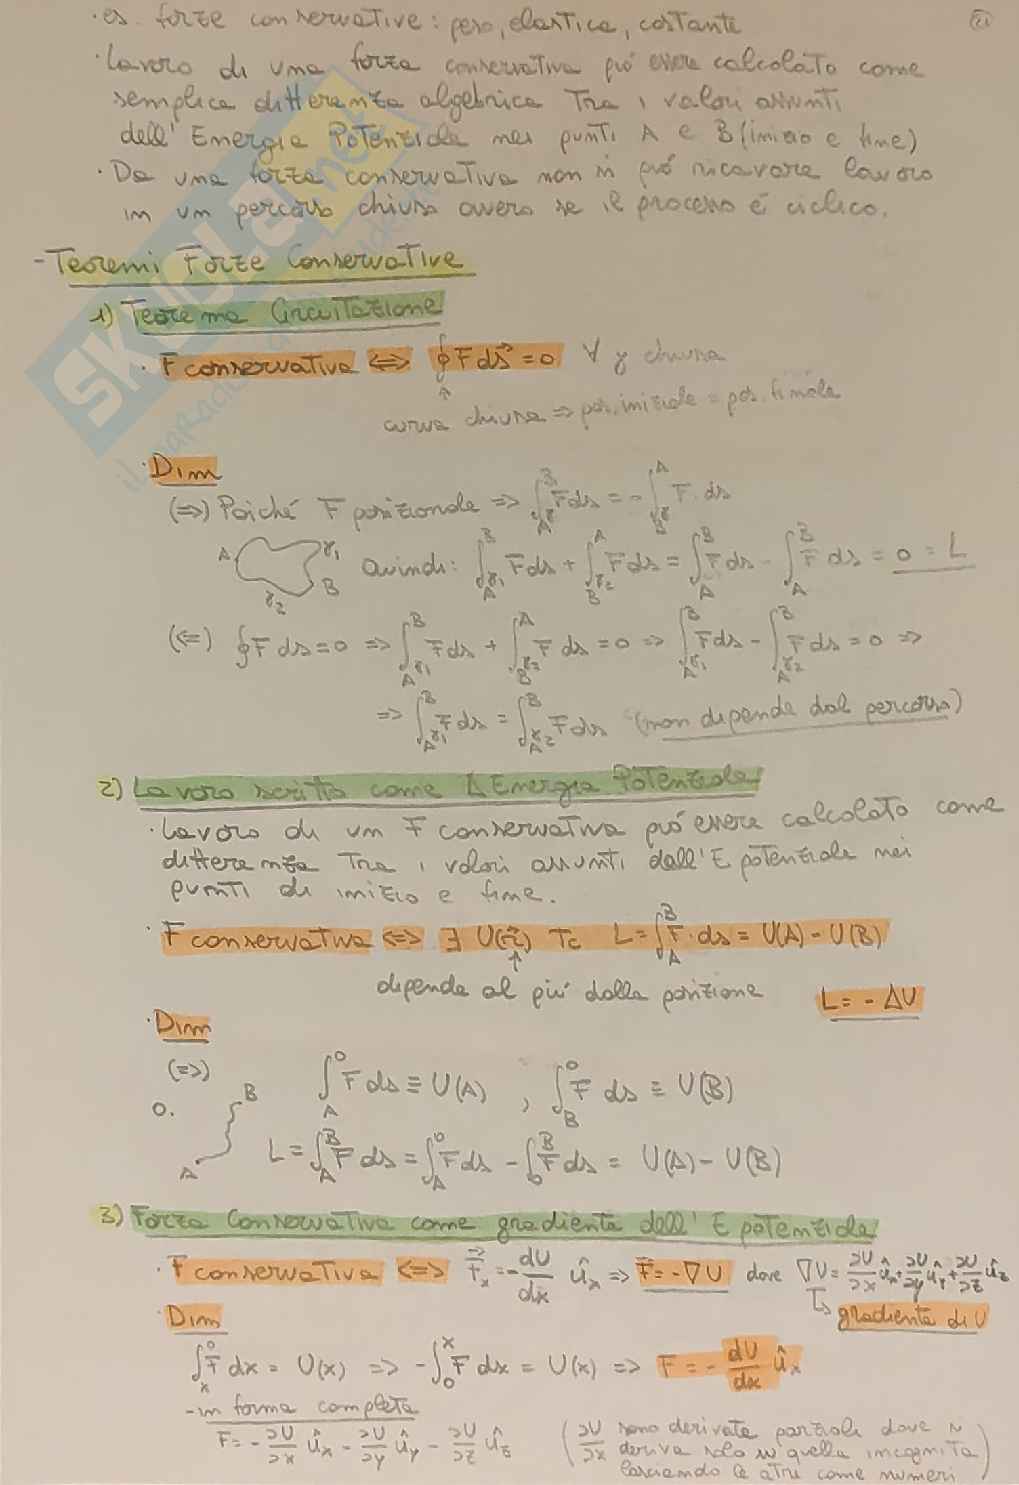 · es. forze conservative: peso, elastica, costante
· Lavoro di una forza conservativa può essere calcolato come
semplice differenza algebrica tra i valori assunti
dell'Energia Potenziale nei punti A e B (inizio e fine)
· Da una forza conservativa non si può ricavare lavoro
in un percorso chiuso ovvero se il processo é ciclico.
- Teoremi Forze Conservative
1) Teorema Circuitazione
· F conservativa <=> ∮F ds⃗ = 0 ∀ γ chiusa
↑
curva chiusa => pos. iniziale = pos. finale
· Dim
(=>) Poiché F posizionale => ∫_{Aγ}^{B} F ds = - ∫_{Bγ}^{A} F · ds
A γ1 B γ2 Quindi: ∫_{Aγ1}^{B} F ds + ∫_{Bγ2}^{A} F ds = ∫_{A}^{B} F ds - ∫_{A}^{B} F ds = 0 = L
(<=) ∮F ds = 0 => ∫_{Aγ1}^{B} F ds + ∫_{Bγ2}^{A} F ds = 0 => ∫_{Aγ1}^{B} F ds - ∫_{Aγ2}^{B} F ds = 0 =>
=> ∫_{Aγ1}^{B} F ds = ∫_{Aγ2}^{B} F ds (non dipende dal percorso)
2) Lavoro scritto come Δ Energia Potenziale
· Lavoro di un F conservativa può essere calcolato come
differenza tra i valori assunti dall'E potenziale nei
punti di inizio e fine.
· F conservativa <=> ∃ U(r⃗) Tc L = ∫_{A}^{B} F · ds = U(A) - U(B)
↑
dipende al più dalla posizione L = - ΔU
· Dim
(=>) ∫_{A}^{0} F ds ≡ U(A) , ∫_{B}^{0} F ds ≡ U(B)
0. B
A L = ∫_{A}^{B} F ds = ∫_{A}^{0} F ds - ∫_{0}^{B} F ds = U(A) - U(B)
3) Forza Conservativa come gradiente dell'E potenziale
· F conservativa <=> F⃗x = - dU/dx ûx => F⃗ = - ∇U dove ∇U = ∂U/∂x ûx + ∂U/∂y ûy + ∂U/∂z ûz
↳ gradiente di U
· Dim
∫_{x}^{0} F dx = U(x) => - ∫_{0}^{x} F dx = U(x) => F = - dU/dx ûx
- in forma completa
F = - ∂U/∂x ûx - ∂U/∂y ûy - ∂U/∂z ûz (∂U/∂x sono derivate parziali dove si
deriva solo in quella incognita
lasciando le altre come numeri)
SKUOLA.net